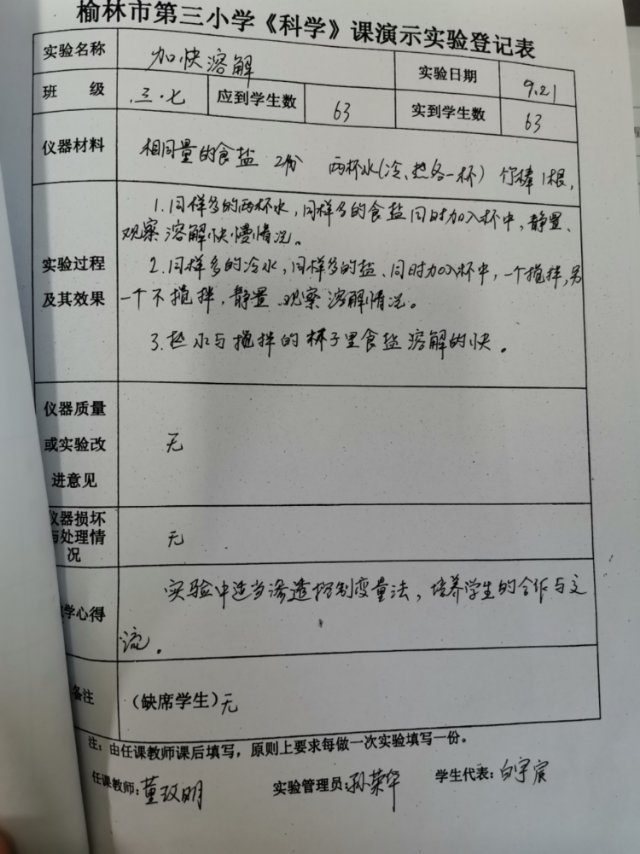 榆林市第三小学《科学》课演示实验登记表
实验名称 加快溶解 实验日期 9.21
班 级 三·七 应到学生数 63 实到学生数 63
仪器材料 相同量的食盐 2份 两杯水(冷、热各一杯) 竹棒1根,
1.同样多的两杯水,同样多的食盐同时加入杯中,静置、
观察溶解快慢情况。
实验过程
及其效果
2.同样多的冷水,同样多的盐、同时加入杯中,一个搅拌,另
一个不搅拌,静置、观察溶解情况。
3.热水与搅拌的杯子里食盐溶解的快。
仪器质量
或实验改
进意见
无
仪器损坏
与处理情
况
无
学心得
实验中适当渗透控制变量法,培养学生的合作与交
流。
备注 (缺席学生)无
注:由任课教师课后填写,原则上要求每做一次实验填写一份。
任课教师:董玫明 实验管理员:孙荣华 学生代表:白宇宸